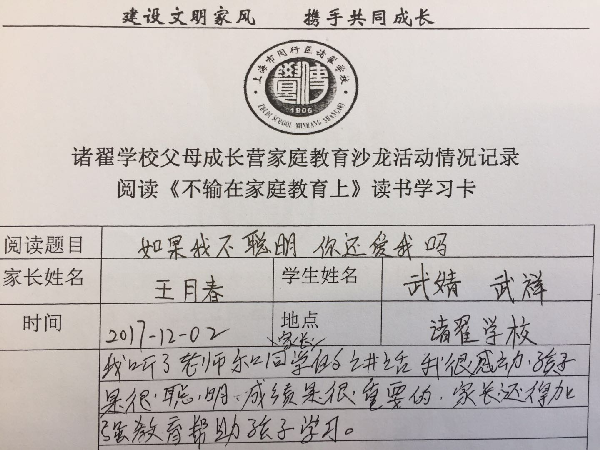 建设文明家风 携手共同成长
上海市闵行区诸翟学校
1906
ZHUDI SCHOOL MINHANG SHANGHAI
诸翟学校父母成长营家庭教育沙龙活动情况记录
阅读《不输在家庭教育上》读书学习卡
阅读题目 如果我不聪明 你还爱我吗
家长姓名 王月春 学生姓名 武婧 武祥
时间 2017-12-02 地点 诸翟学校
家长
我听了老师和同学们的讲话 我很感动,孩子
果很聪明,成绩果很重要的,家长还得加
强教育帮助孩子学习。